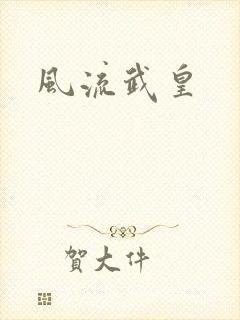 風流武皇
賀大件